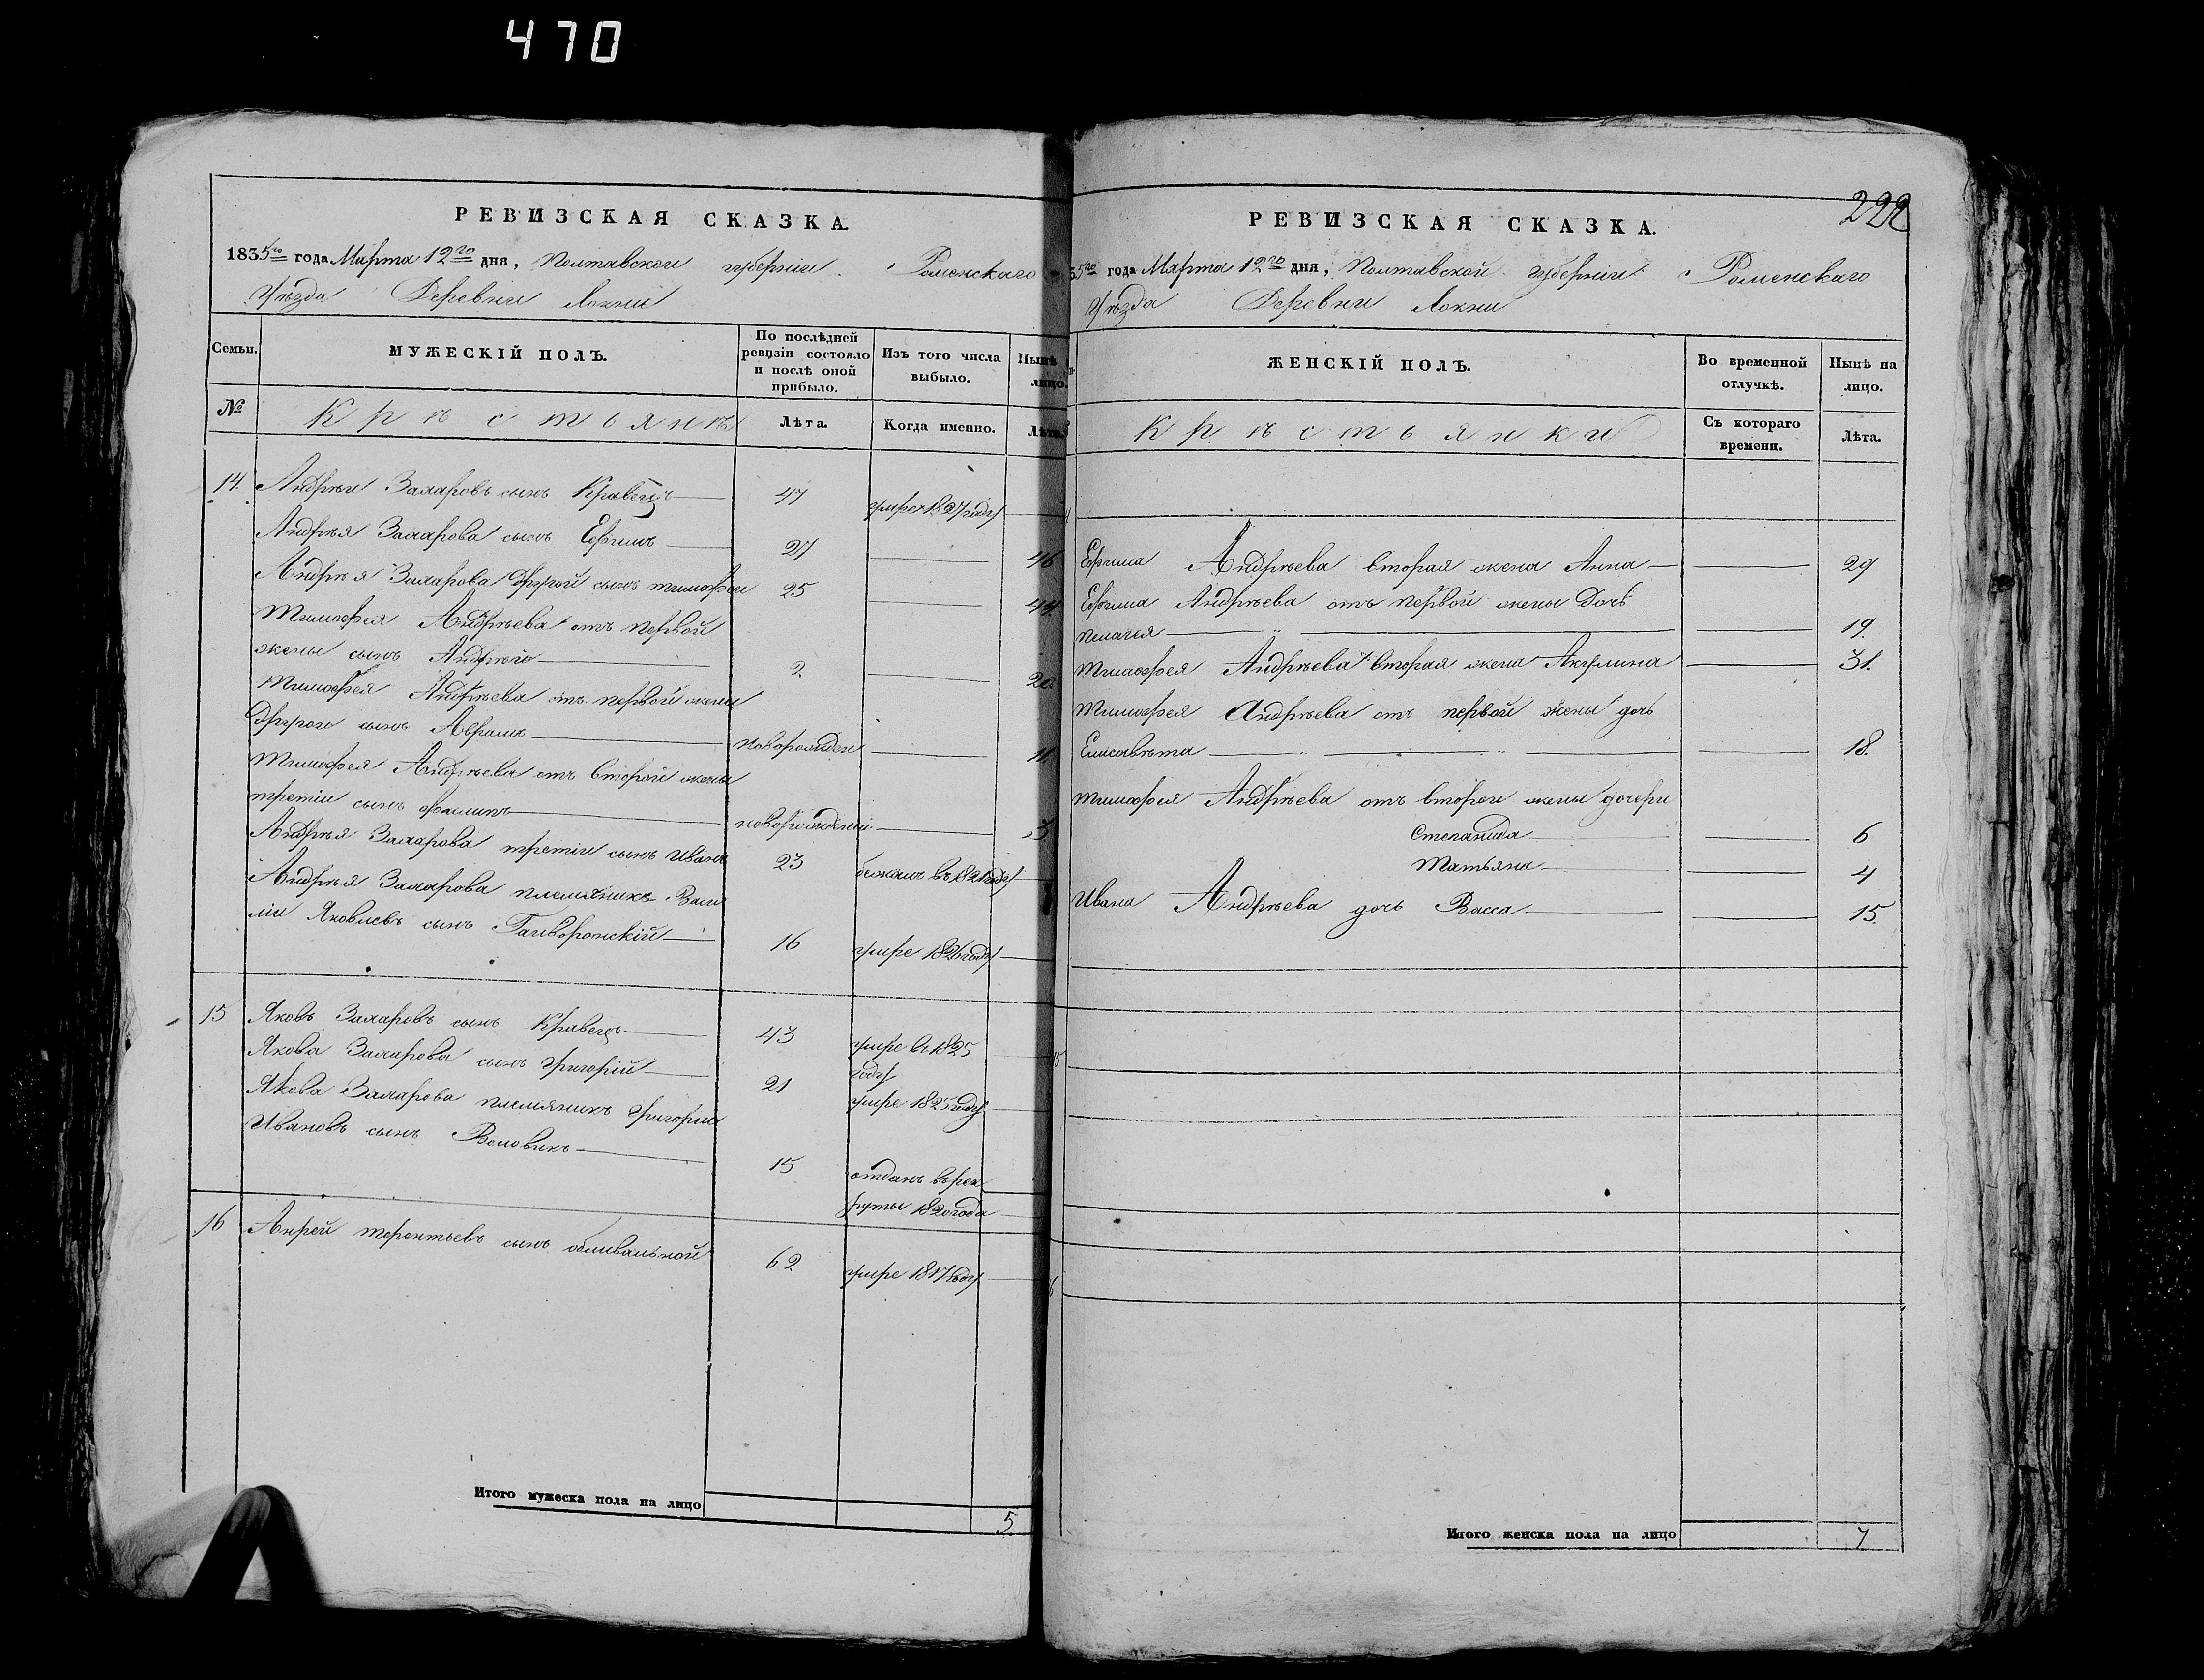 470
РЕВИЗСКАЯ СКАЗКА.
1835го года Марта 12го дня, Полтавской губернии Роменскаго
Уѣзда Деревни Локни
Семьи.
МУЖЕСКІЙ ПОЛЪ.
По послѣдней ревизіи состояло и послѣ оной прибыло.
Изъ того числа выбыло.
Нынѣ лицо.
№
Крѣстьянѣ
Лѣта.
Когда именно.
Лѣта.
14. Андрѣи Захаровъ сынъ Кравецъ 47 умре 1827 году
Андрѣя Захарова сынъ Ефимъ 27 46
Андрѣя Захарова другой сынъ тимофеи 25 44.
Тимофея Андрѣева отъ первой
жены сынъ Андрѣй 2. 20
Тимофея Андрѣева отъ первой жены
другои сынъ Аврамъ новорожден 11.
Тимофея Андрѣева отъ второй жены
третіи сынъ новорожденый 3
Андрѣя Захарова третіи сынъ Иванъ 23 бежалъ въ 1821 году
Андрѣя Захарова племяникъ Васи
лiи Яковлевъ сынъ 16 умре 1826 году
15 Яковъ Захаровъ сынъ Кравецъ 43 умре въ 1825
году
Якова Захарова сынъ Григорій 21 умре 1825 году
Якова Захарова племяникъ Григорій
Ивановъ сынъ Воловикъ 15 отданъ врек
руты 1820 года
16 Анрей терентьевъ сынъ обливальной 62 умре 1817 году
Итого мужеска пола на лицо 5
222
РЕВИЗСКАЯ СКАЗКА.
5го года Марта 12го дня, Полтавской губерніи Роменскаго
Уѣзда Деревни Локни
ЖЕНСКІЙ ПОЛЪ.
Во временной отлучкѣ.
Нынѣ на лицо.
Крѣстьянки
Съ котораго времени.
Лѣта.
Ефима Андрѣева вторая жена Анна 29
Ефима Андрѣева отъ первой жены дочь
пелагея 19.
Тимофея Андрѣева вторая жена Акулина 31.
Тимофея Андрѣева отъ первой жены дочь
Елисавѣта 18.
тимофея Андрѣева отъ второи жены дочери
Степанида 6
Татьяна 4
Ивана Андрѣева дочь Васса 15.
Итого женска пола на лицо 7